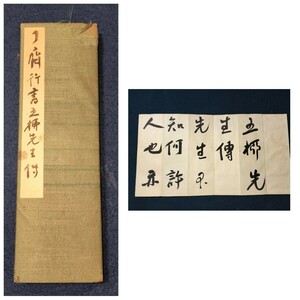 行書五柳先生傳
五柳先
生傳
先生不
知何許
人也亦